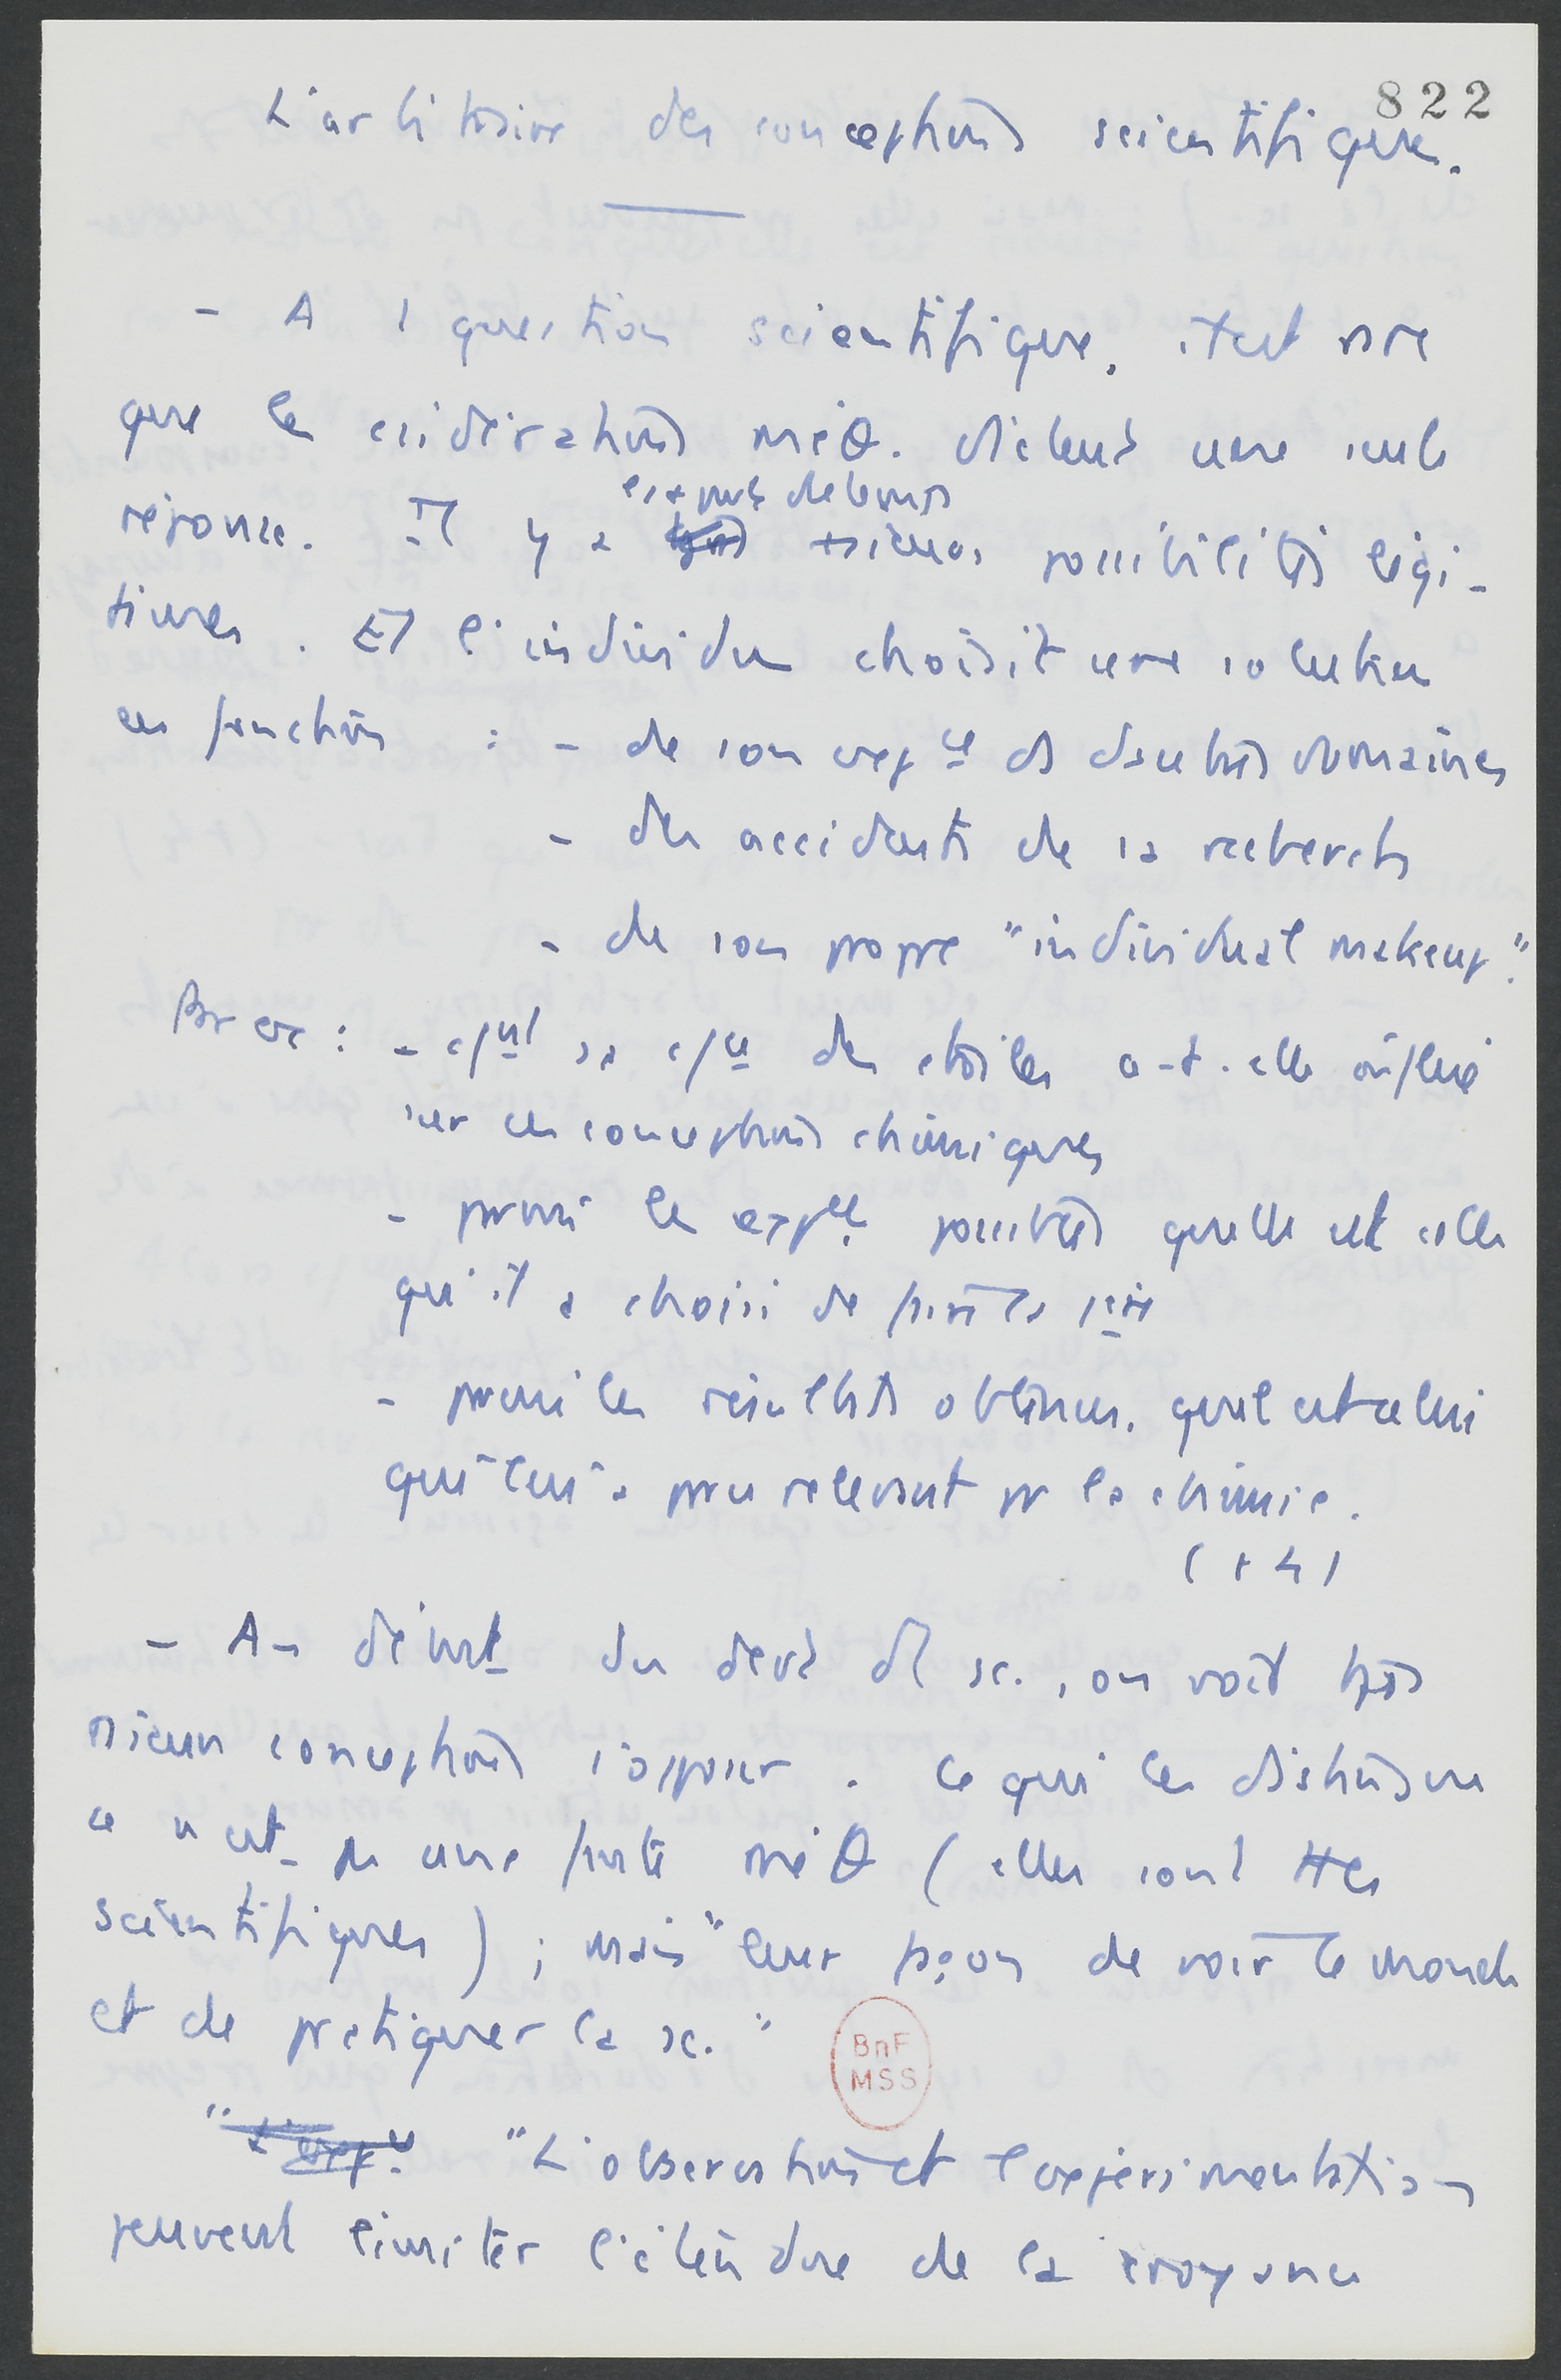 822
L'arbitraire des conceptions scientifiques.
- A 1 question scientifique, il est rare
que les considérations méθ. dictent une seule
réponse. Il y a plusieurs possibilités légi-
times. Et l'individu choisit une solution
en fonction : - de son expce ds d'autres domaines
- des accidents de la recherche
- de son propre "individual makeup".
Par ex : - cmt sa cce des étoiles a-t-elle influé
sur ces conceptions chimiques
- parmi les expces possibles quelle est celle
qu'il a choisi de faire la 1ère
- parmi les résultats obtenus, quel est celui
qui lui a paru relevant pr la chimie.
(p 4)
- Au début du devt d'1 sc., on voit tjs
plusieurs conceptions s'opposer. Ce qui les distingue
ce n'est pas une faute méθ (elles sont ttes
scientifiques) ; mais "leur façon de voir le monde
et de pratiquer la sc."
BnF
MSS
"L'expce "L'observation et l'expérimentation
peuvent limiter l'étendue de la croyance